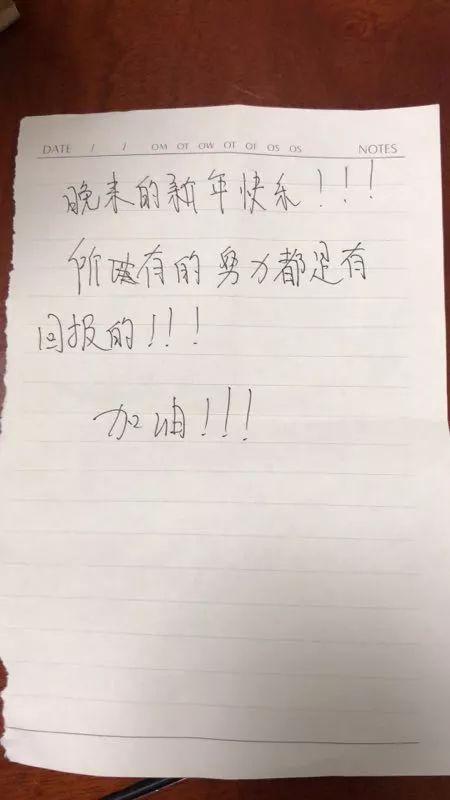 DATE / / OM OT OW OT OF OS OS NOTES
晚来的新年快乐!!!
所有的努力都是有
回报的!!!
加油!!!